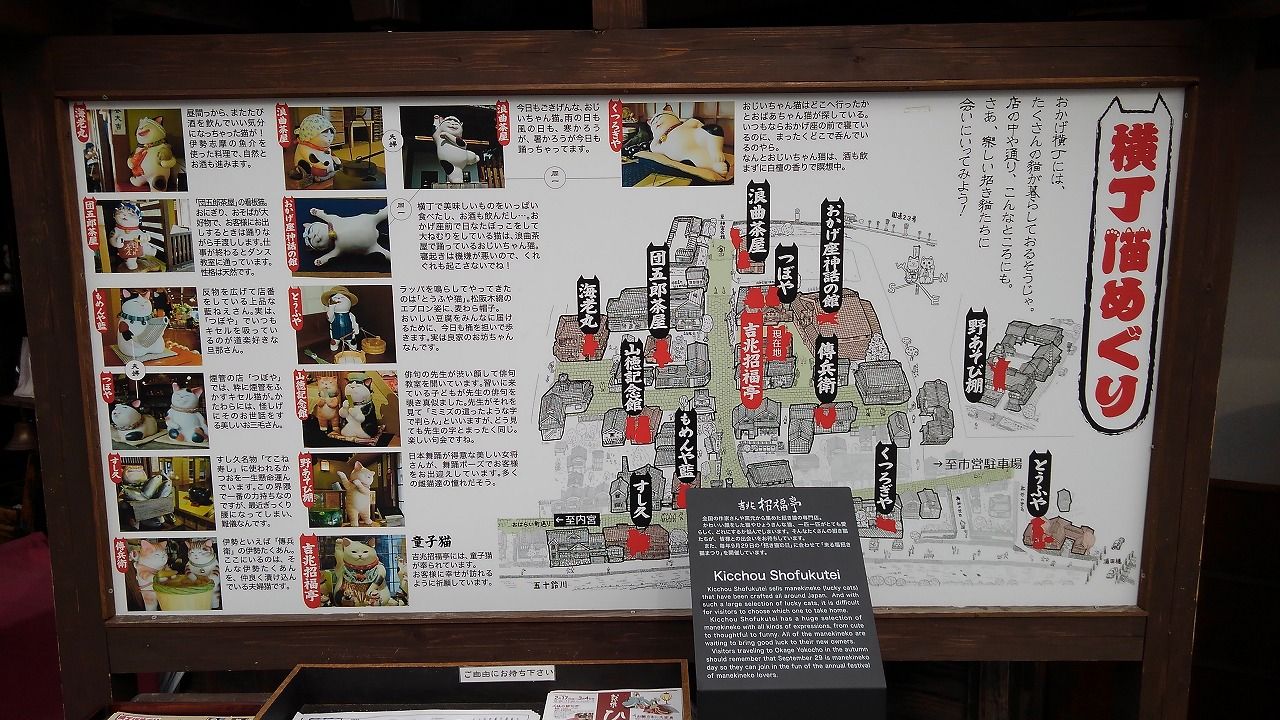 横丁猫めぐり
おかげ横丁には、
たくさんの猫が暮らしておるそうじゃ。
店の中や通り、こんなところにも。
さあ、楽しい招き猫たちに
会いにいってみよう!
海老丸
昼間っから、またたび
酒を飲んでいい気分
になっちゃった猫が!
伊勢志摩の魚介を
使った料理で、自然と
お酒も進みます。
浪曲茶屋
夫婦
浪曲茶屋
今日もごきげんな、おじ
いちゃん猫。雨の日も
風の日も、寒かろう
が、暑かろうが今日も
踊っちゃってます。
くつろぎや
おじいちゃん猫はどこへ行ったか
とおばあちゃん猫が探している。
いつもならおかげ座の前で寝てい
るのに、まったくどこで遊んでい
るのやら。
なんとおじいちゃん猫は、酒も飲
まずに白檀の香りで瞑想中。
団五郎茶屋
「団五郎茶屋」の看板猫。
おにぎり、おそばが大
好物で、お客様にお出
しするときは踊りな
がら手渡しします。仕
事が終わるとダンス
教室に通っています。
性格は天然です。
おかげ座神話の館
横丁で美味しいものをいっぱい
食べたし、お酒も飲んだし…。お
かげ座前で日なたぼっこをして
大ねむりをしている猫は、浪曲茶
屋で踊っているおじいちゃん猫。
寝起きは機嫌が悪いので、くれ
ぐれも起こさないでね!
もめんや藍
反物を広げて店番
をしている上品な
藍ねえさん。実は、
「つぼや」で粋に
キセルを吸ってい
るのが道楽好きな
旦那さん。
夫婦
とうふや
ラッパを鳴らしてやってきた
のは「とうふや猫」。松阪木綿の
エプロン姿に、麦わら帽子。
おいしい豆腐をみんなに届け
るために、今日も桶を担いで歩
きます。実は良家のお坊ちゃん
なんです。
つぼや
煙管の店「つぼや」
では、粋に煙管をふ
かすキセル猫が。か
たわらには、怪しげ
にそのお世話をす
る美しいお三毛さん。
山徳記念館
俳句の先生が渋い顔して俳句
教室を開いています。習いに来
ている子どもが先生の俳句を
覗き見しました。先生がそれを
見て「ミミズの這ったような字
で判らん」といいますが、どう見
ても先生の字とまったく同じ。
楽しい句会ですね。
すし久
すし久名物「てこね
寿し」に使われるか
つおを一生懸命運ん
でいます。この界隈
で一番の力持ちなの
ですが、最近ぎっくり
腰になってしまい、
難儀なんです。
野あそび棚
日本舞踊が得意な美しい女将
さんが、舞踊ポーズでお客様
をお出迎えしています。多く
の雄猫達の憧れだそう。
傳兵衛
伊勢といえば「傳兵
衛」の伊勢たくあん。
ここにいるのは、そ
んな伊勢たくあん
を、仲良く漬け込ん
でいる夫婦猫です。
吉兆招福亭
童子猫
吉兆招福亭には、童子猫
が奉られています。
お客様に幸せが訪れる
ように祈願しています。
浪曲茶屋
おかげ座神話の館
つぼや
団五郎茶屋
海老丸
山徳記念館
吉兆招福亭
現在地
傳兵衛
野あそび棚
もめんや藍
すし久
くつろぎや
とうふや
国道23号
→至市営駐車場
おはらい町通り
←至内宮
五十鈴川
吉兆招福亭
全国の作家さんや窯元から集めた招き猫の専門店。
かわいい顔をした猫やひょうきんな猫、一匹一匹がとても愛
らしく、どれにするか悩んでしまいます。そんなたくさんの招き猫
たちが、皆様との出会いをお待ちしています。
また、毎年9月29日の「招き猫の日」に合わせて「来る福招き
猫まつり」を開催しています。
Kicchou Shofukutei
Kicchou Shofukutei sells manekineko (lucky cats)
that have been crafted all around Japan. And with
such a large selection of lucky cats, it is difficult
for visitors to choose which one to take home.
Kicchou Shofukutei has a huge selection of
manekineko with all kinds of expressions, from cute
to thoughtful to funny. All of the manekineko are
waiting to bring good luck to their new owners.
Visitors traveling to Okage Yokocho in the autumn
should remember that September 29 is manekineko
day so they can join in the fun of the annual festival
of manekineko lovers.
ご自由にお持ち下さい